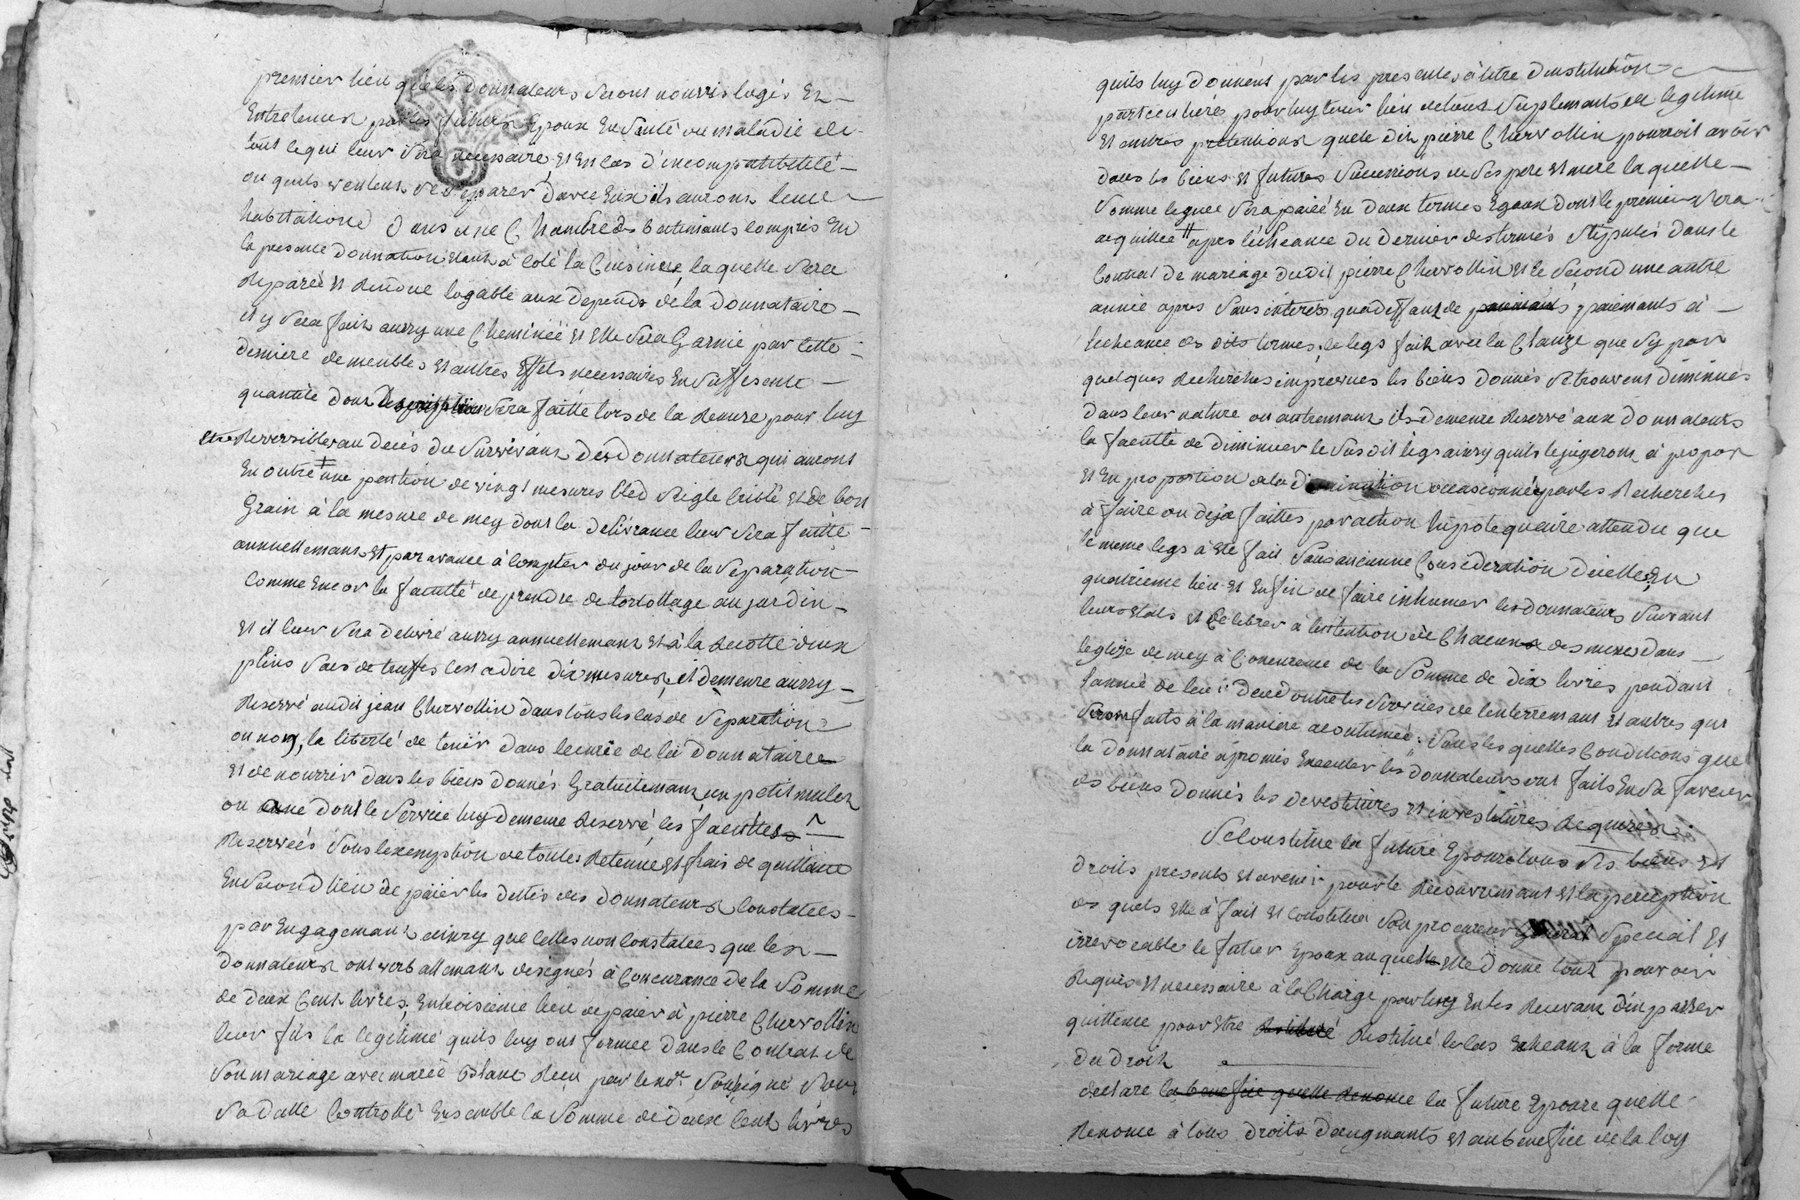 premier lieu que les donnateurs seront nourris logés Et
Entretenus par les futurs Epoux En santé ou maladie de
tout ce qui leur sera necessaire, et En cas d'incompatibilité
ou quils veulent se separer d'avec Eux ils auront leur
habitation dans une Chambre des batiments compris En
la presente donnation etant à coté la Cuisine, la quelle sera
Reparée et Rendue logable aux depends de la donnataire
il y sera fait aussy une Cheminée et Elle sera Garnie par cette
derniere de meubles et autres Effets necessaires En suffisente
quantité dont description sera faitte lors de la Remise pour luy
etre Reversible au decés du survivant des donnateurs qui auront
En outre une pention de vingt mesures bled seigle criblé et de bon
Grain à la mesure de mey dont la delivrance leur sera faitte
annuellemans et par avance à compter du jour de la separation
Comme Encor la faculté de prendre de tortollage au jardin
et il leur sera delivré aussy annuellemans et à la Recotte deux
pleins sacs de truffes cest adire dix mesures, il demeure aussy
Reservé audit jean Chervollin dans tous les cas de separation
ou non, la liberté de tenir dans lecurie de la donnataire
et de nourrir dans les biens donnés Gratuitemans un petit mulet
ou ane dont le service luy demeure Reservé, les facultés
Reservées sous lexemption de toutes Retenue et frais de quittance
En second lieu de païer les dettes des donnateurs Constatées
par Engagemans ainsy que celles non Constatées que les
donnateurs ont verballemans designés à Concurance de la Somme
de deux Cent livres; En troisieme lieu de païer à pierre Chervollin
leur fils la legitime quils luy ont formee dans le Contrat de
son mariage avec marie Reçu par le nore soussigné sous
sa datte Controllé Ensemble la somme de deux Cent livres
quils luy donnent par les presentes à titre dinstitution
particuliere pour luy tenir lieu de tous suplements de legitime
et autres pretentions que le dit pierre Chervollin pourroit avoir
dans les biens et futures successions de ses pere et mere la quelle
somme leguée sera païée En deux termes Egaux dont le premier sera
acquittée apres lecheance du dernier des termes stipulés dans le
Contrat de mariage dudit pierre Chervollin et le second une autre
année apres sans interes qua deffaut de paiemants à
lecheance des dits termes, le legs fait avec la Clauze que sy par
quelques Recherches imprevues les biens donnés se trouvent diminués
dans leur nature ou autremans il demeure Reservé aux donnateurs
la faculté de diminuer le susdit legs ainsy quils le jugeront à propos
et En proportion de la diminution occasionnée par les Recherches
à faire ou deja faittes par action hipotequaire attendu que
le meme legs à Ete fait sans aucunne Consideration dicelles En
quatrieme lieu et En fin de faire inhumer les donnateurs suivant
leurs etats et Celebrer à lintention de Chacun des messes dans
leglize de mey à Concurence de la somme de dix livres pendant
lannée de leur outre les services de lenterremant et autres qui
seront faits à la maniere acoutumée; sous les quelles Conditions que
la donnataire à promis Executer les donnateurs ont faits En sa faveur
des biens donnés les devestitures et investitures Requises.
Se Constitue la future Epouze tous ses biens et
droits presents et avenir pour le Recouvremant et la perception
des quels Elle à fait et Constitué son procureur general special Et
irrevocable le futur Epoux au quel Elle donne tout pouvoir
Requis et necessaire à la Charge par luy En les Recevant d'En passer
quittence pour etre Restitué le cas Echeant à la forme
Du Droit
declare la benefice quelle Renonce la future Epouze quelle
Renonce à tous droits d'augmants et au benefice de la loy